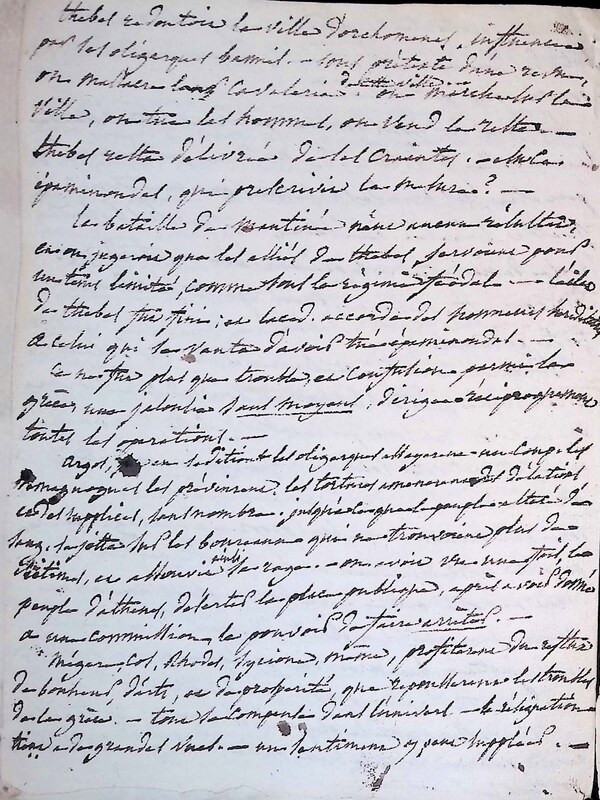 thebes redoutoit la ville d'orchomenes, influencée
par les oligarques bannis. – sous prétexte d'une
on massacre la cavalerie de cette ville. – on marche sur la
ville, on tue les hommes, on vend le reste. –
thebes resta délivrée de ses craintes. –
épaminondas, qui prescrivit la mesure ? –
la bataille de mantinée n'eut aucun résultat,
on jugeroit que les alliés de thebes, servoient pour
un tems limité, comme sous le régime féodal. – l'éclat
de thebes fut fini, et laced. accorda des honneurs héréditaires
a celui qui se vanta d'avoir tué épaminondas. –
ce ne fut plus que trouble, et confusion parmi la
grèce, une jalousie sans moyens, dirigea réciproquement
toutes les opérations. –
argos, en sédition, les oligarques essayerent un coup, les
demagogues les prévinrent, les tortures amenerent des délations
et des supplices, sans nombre, jusqu'à ce que le peuple altéré de
sang, se jetta sur les bourreaux qui ne trouvoient plus de
victimes, et assouvit sa rage. – on avoit vu une fois, le
peuple d'athenes, déserter la place publique, après avoir donné
a une commission, le pouvoir de faire arrêter. –
Mégare, Cos, Rhodes, Sycione, même, profiterent du reflux
de bonheur, d'arts, et de prosperité, que repousserent les troubles
de la grèce. – tout se compense dans l'univers – la résignation
tient a de grandes vues. – un sentiment y peut suppléer. –